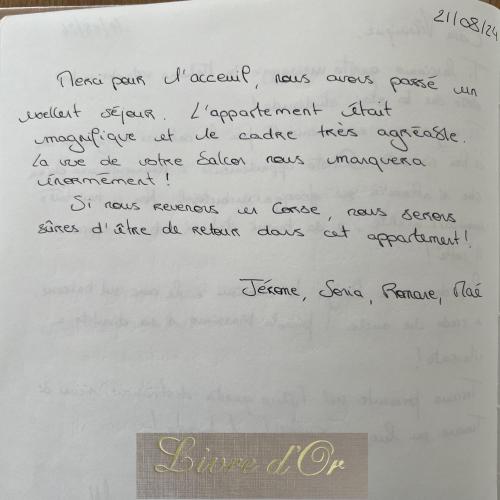 21/08/24
Merci pour l'acceuil, nous avons passé un
excellent séjour. L'appartement était
magnifique et le cadre très agréable.
La vue de votre balcon nous manquera
énormément !
Si nous revenons en Corse, nous serons
sûres d'être de retour dans cet appartement !
Jérôme, Sonia, Romane, Maé
Livre d'Or